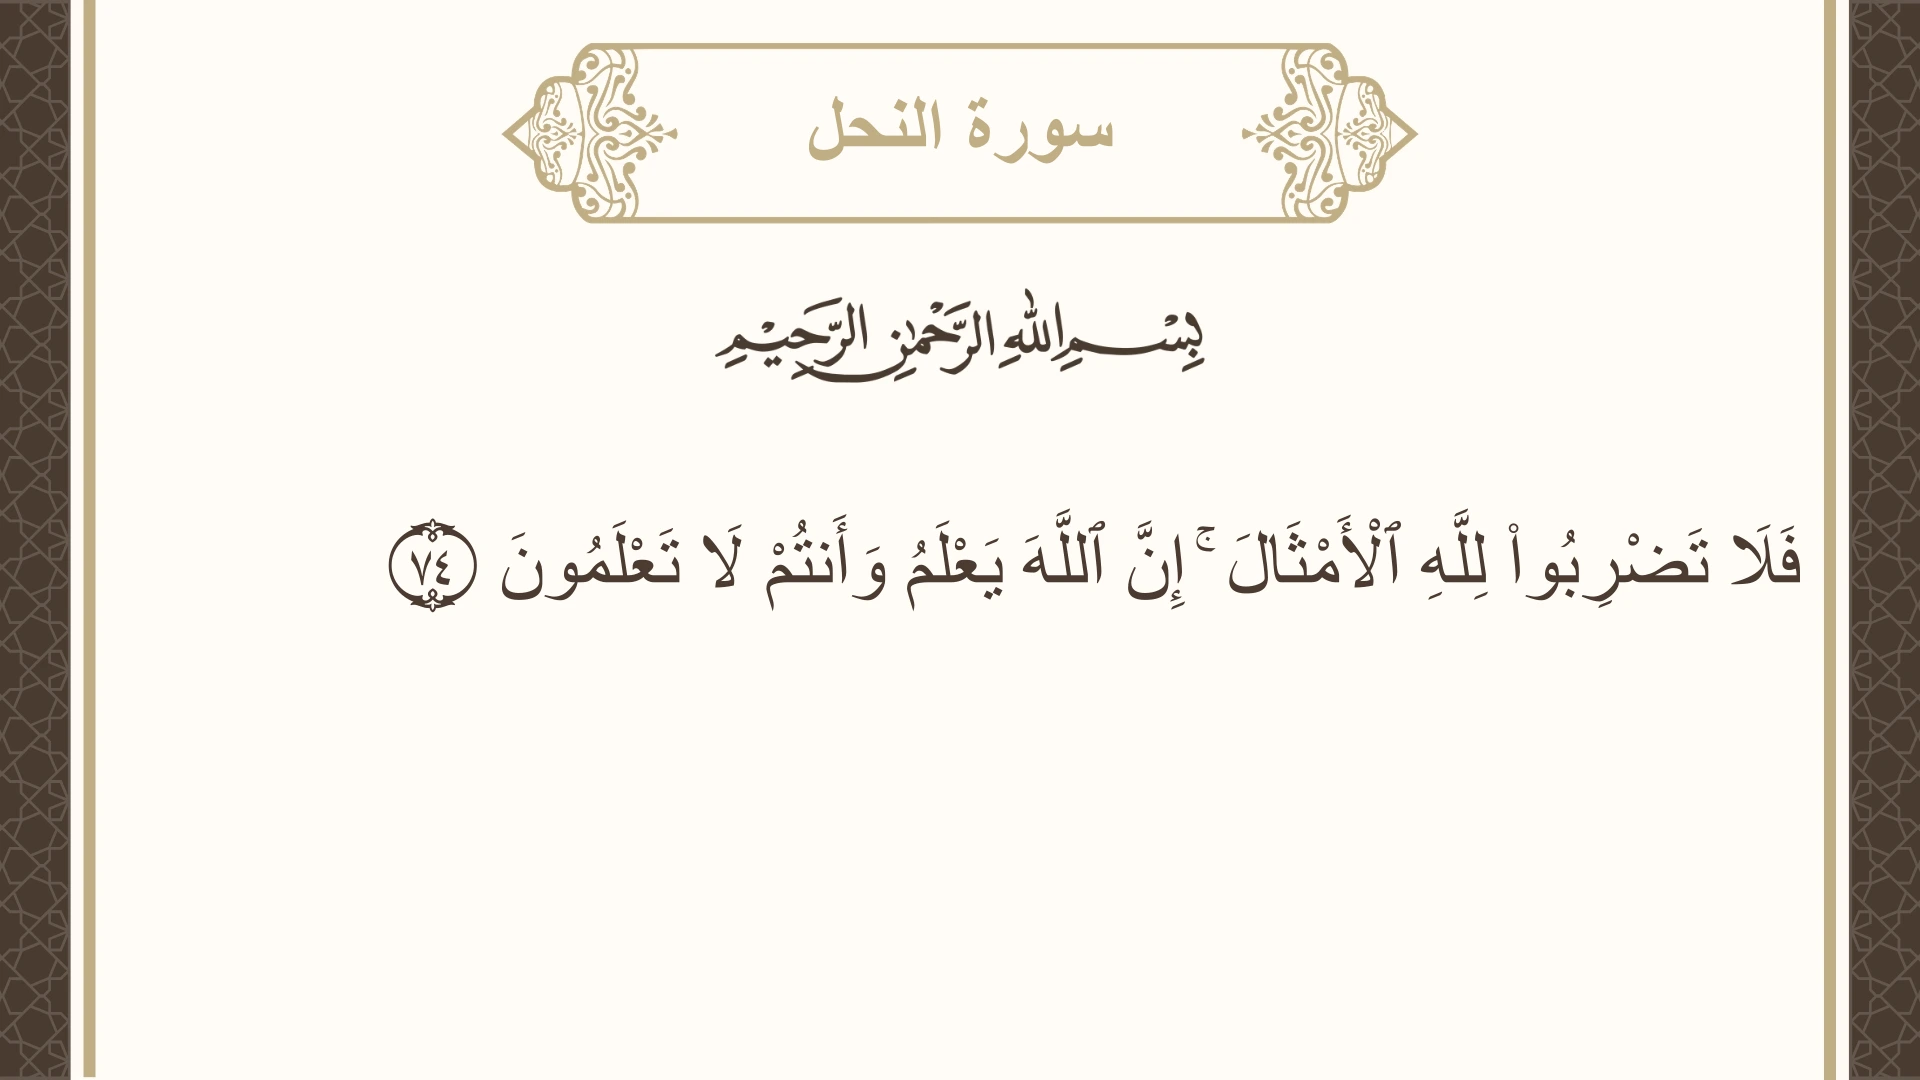 سورة النحل
بِسْمِ اللهِ الرَّحْمٰنِ الرَّحِيْمِ
فَلَا تَضْرِبُوا۟ لِلَّهِ ٱلْأَمْثَالَ ۚ إِنَّ ٱللَّهَ يَعْلَمُ وَأَنتُمْ لَا تَعْلَمُونَ ٧٤